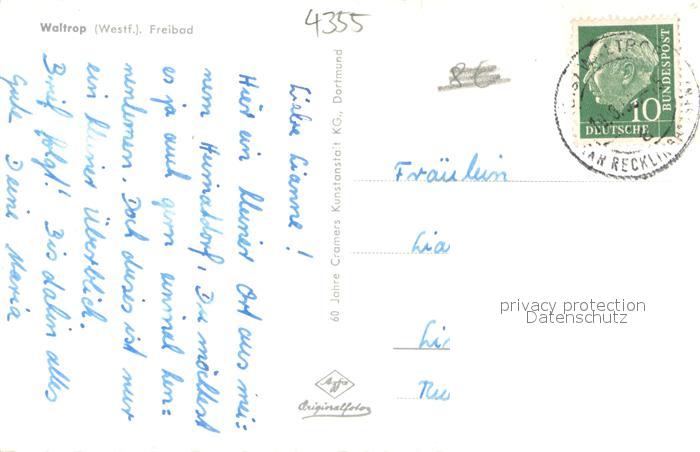 Waltrop (Westf.). Freibad
4355
8€
Liebe Lianne!
Hier ein kleiner Ort aus mei=
nem Heimatdorf, Du möchtest
es ja auch gern einmal ken=
nenlernen. Doch dieses ist nur
ein kleiner Überblick.
Brief folgt! Bis dahin alles
Gute Deine Maria
60 Jahre Cramers Kunstanstalt KG., Dortmund
Agfa
Originalfoto
DEUTSCHE
BUNDESPOST
10
WALTROP
RECKLINGHAUSEN
Fräulein
Lia
Li
privacy protection
Datenschutz